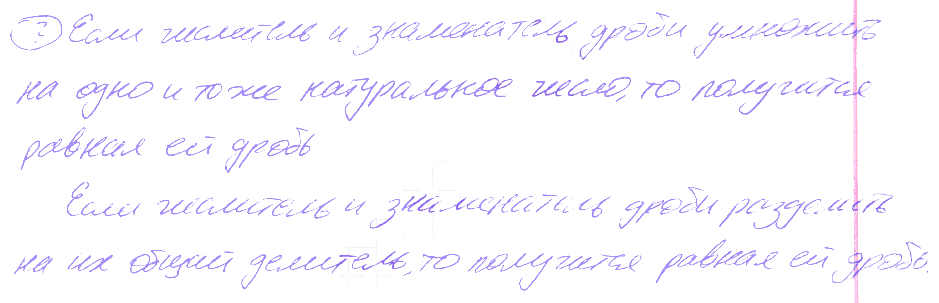 ? Если числитель и знаменатель дроби умножить
на одно и тоже натуральное число, то получится
равная ей дробь
Если числитель и знаменатель дроби разделить
на их общий делитель, то получится равная ей дробь.